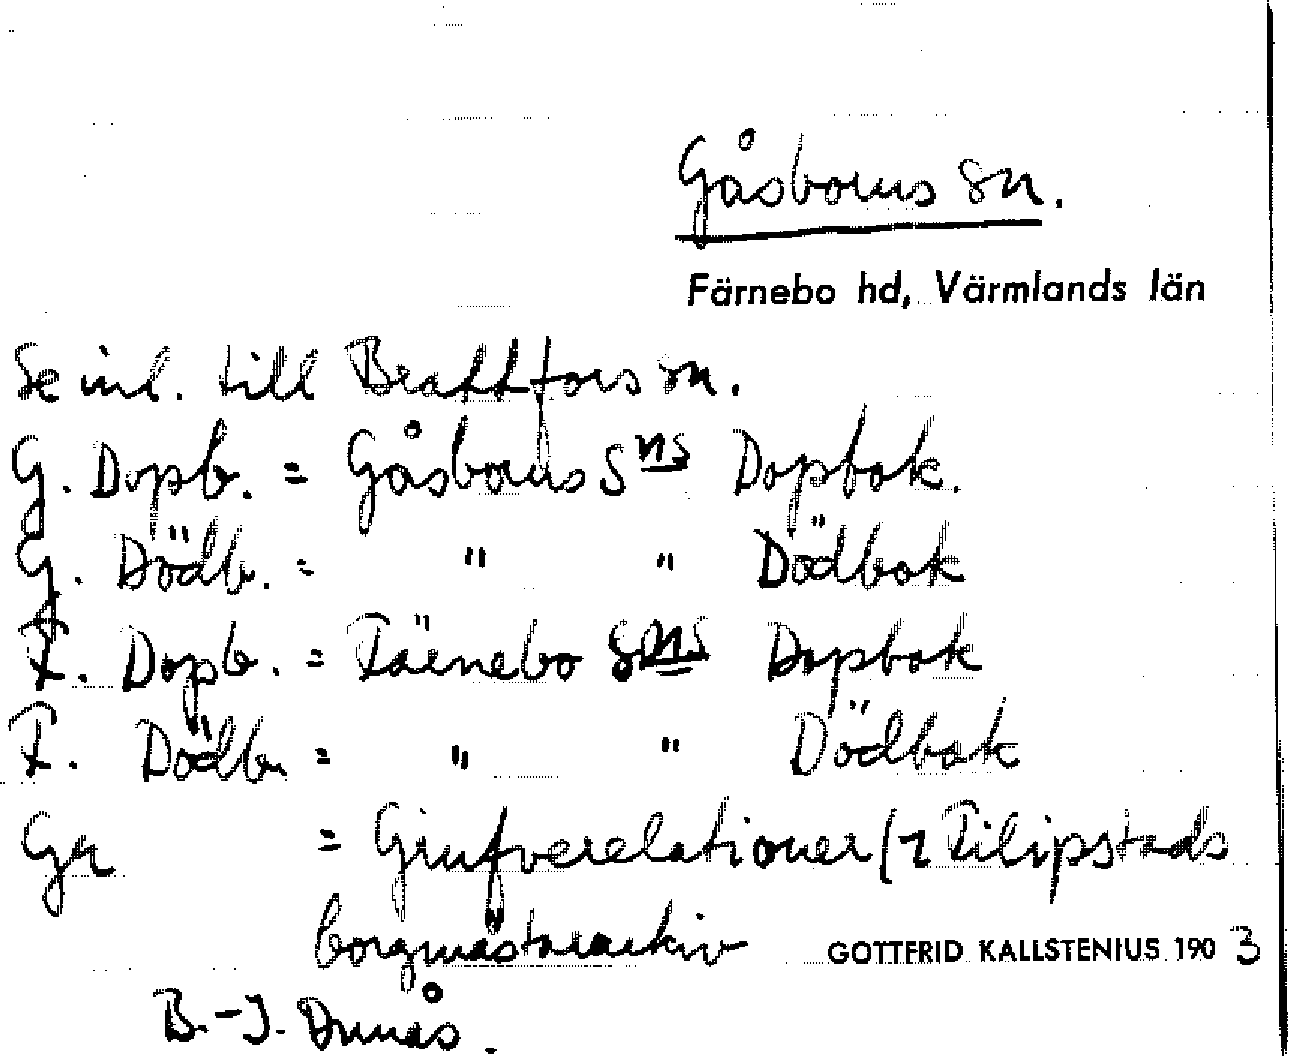 Gåsborns sn.
Färnebo hd, Värmlands län
Se inl. till Brattfors sn.
G. Dopb. = Gåsborns Sns Dopbok.
G. Dödb. = " " Dödbok
F. Dopb. = Färnebo Sns Dopbok
F. Dödb. = " " Dödbok
Gr = Grufverelationer (i Filipstads
borgmästarearkiv
GOTTFRID KALLSTENIUS 1903
B.-J.